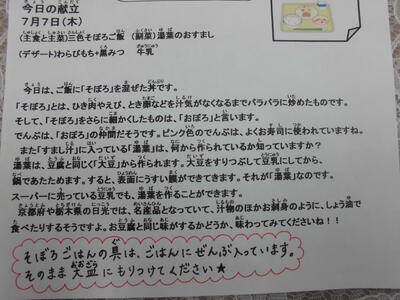 今日の献立
7月7日(木)
(主食と主菜)三色そぼろご飯 (副菜)湯葉のおすまし
(デザート)わらびもち+黒みつ 牛乳
今日は、ご飯に「そぼろ」を混ぜた丼です。
「そぼろ」とは、ひき肉やえび、とき卵などを汁気がなくなるまでパラパラに炒めたものです。
そして、「そぼろ」をさらに細かくしたものは、「おぼろ」と言います。
でんぶは、「おぼろ」の仲間だそうです。ピンク色のでんぶは、よくお寿司に使われていますね。
また「すまし汁」に入っている「湯葉」は、何から作られているか知っていますか？
湯葉は、豆腐と同じく「大豆」から作られます。大豆をすりつぶして豆乳にしてから、
鍋であたためます。すると、表面にうすい膜ができてきます。それが「湯葉」なのです。
スーパーに売っている豆乳でも、湯葉を作ることができます。
京都府や栃木県の日光では、名産品となっていて、汁物のほかお刺身のように、しょう油で
食べたりするそうですよ。お豆腐と同じ味がするかどうか、味わってみてくださいね！！
そぼろごはんの具は、ごはんにぜんぶ入っています。
そのまま大皿にもりつけてください★